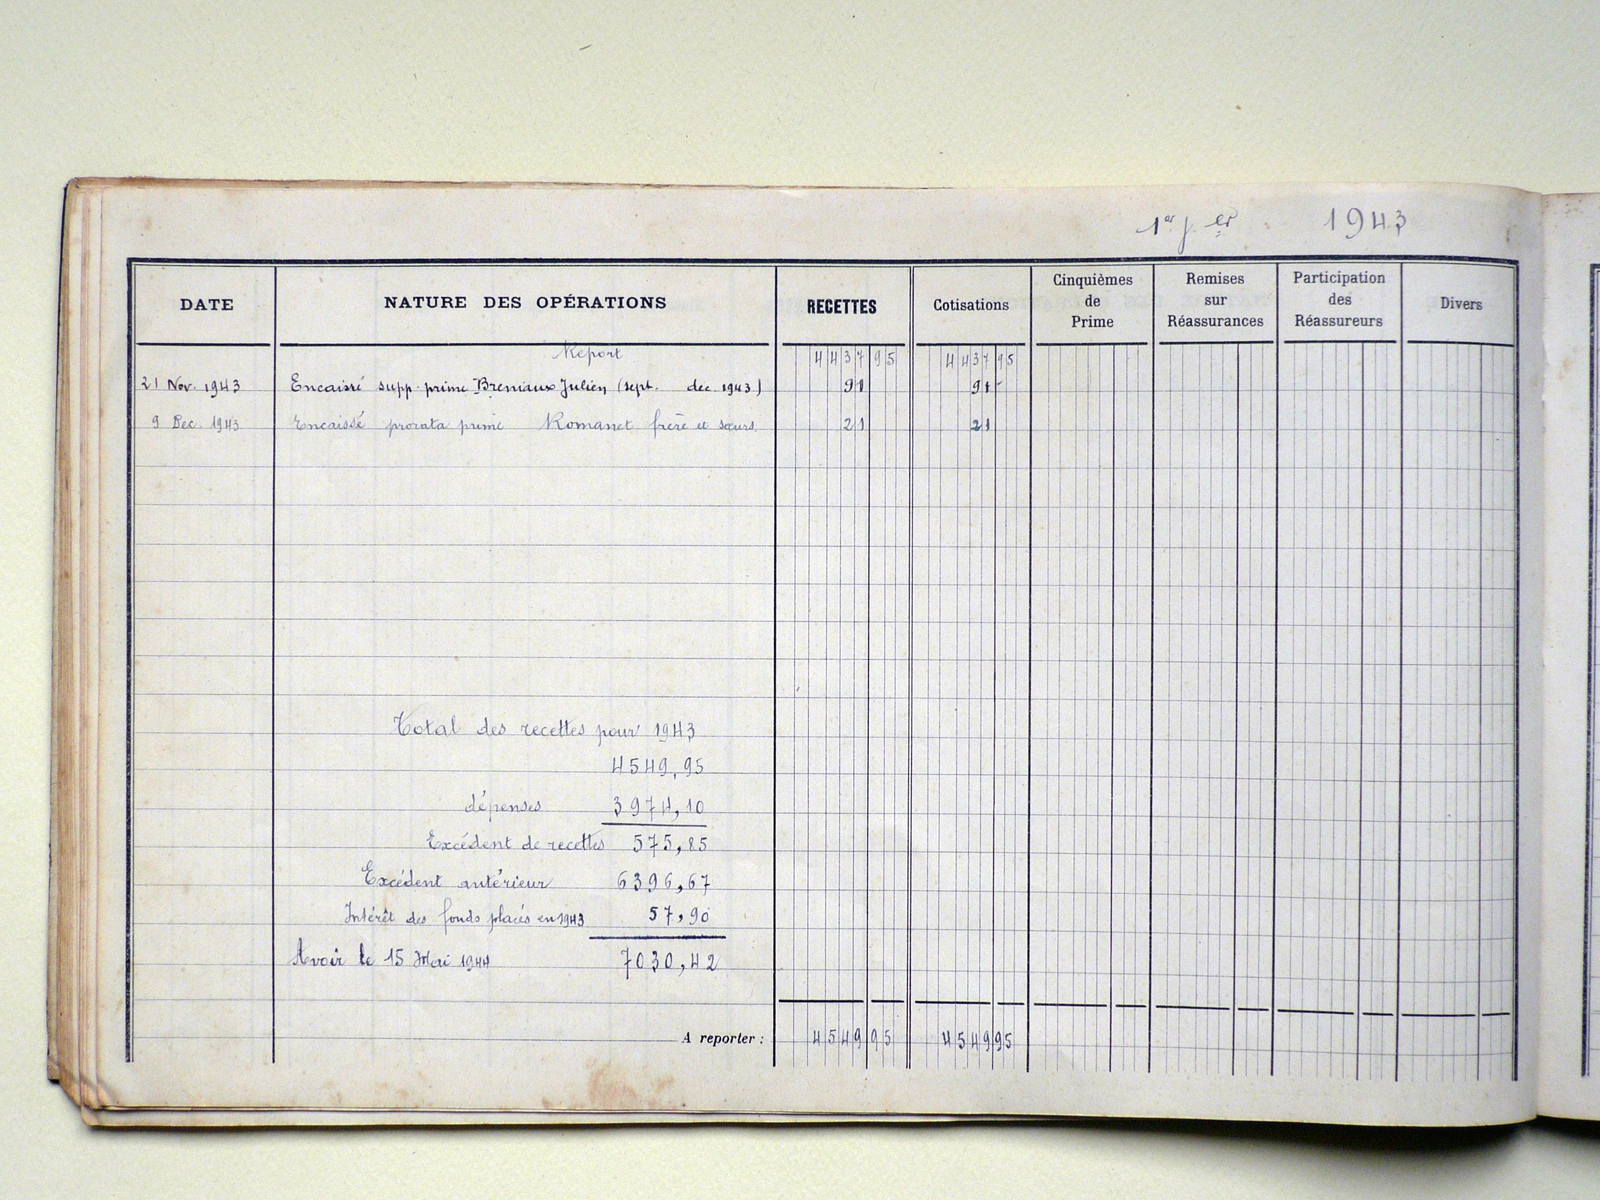 1er j.er 1943
DATE NATURE DES OPÉRATIONS RECETTES Cotisations Cinquièmes de Prime Remises sur Réassurances Participation des Réassureurs Divers
Report 4437 95 4437 95
21 Nov. 1943 Encaissé supp. prime Breniaux Julien (sept. dec. 1943) 91 91-
9 Dec. 1943 Encaissé prorata prime Romanet frère et sœurs. 21 21
Total des recettes pour 1943
4549,95
dépenses 3974,10
Excédent de recettes 575,85
Excédent antérieur 6396,67
Intérêt des fonds placés en 1943 57,90
Avoir le 15 Mai 1944 7030,42
A reporter : 4549 95 4549 95